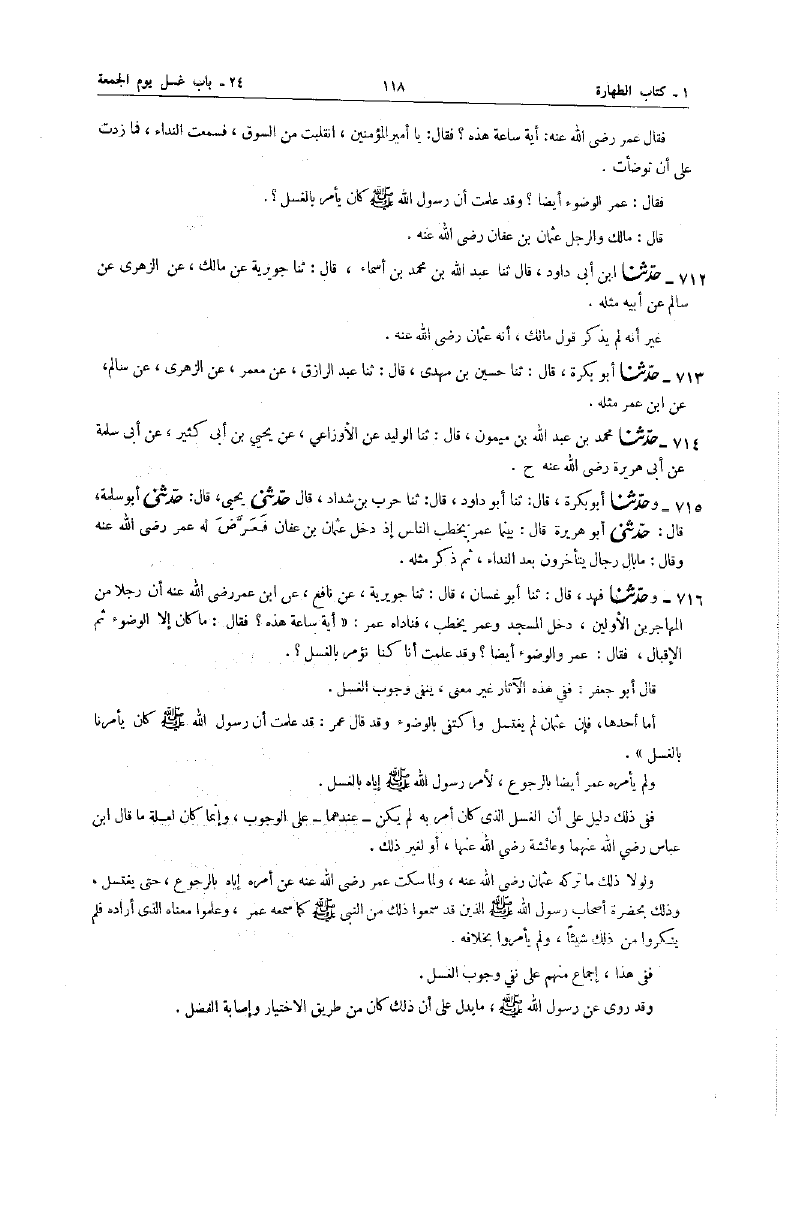 ١ ـ كتاب الطهارة ١١٨ ٢٤ ـ باب غسل يوم الجمعة
فقال عمر رضى الله عنه: أية ساعة هذه ؟ فقال: يا أمير المؤمنين ، انقلبت من السوق ، فسمعت النداء ، فما زدت
على أن توضأت .
فقال : عمر الوضوء أيضا ؟ وقد علمت أن رسول الله ﷺ كان يأمر بالغسل ؟ .
قال : مالك والرجل عثمان بن عفان رضى الله عنه .
٧١٢ ـ حدثنا ابن أبى داود ، قال ثنا عبد الله بن محمد بن أسماء ، قال : ثنا جويرية عن مالك ، عن الزهرى عن
سالم عن أبيه مثله .
غير أنه لم يذكر قول مالك ، أنه عثمان رضى الله عنه .
٧١٣ ـ حدثنا أبو بكرة ، قال : ثنا حسين بن مهدى ، قال : ثنا عبد الرازق ، عن معمر ، عن الزهرى ، عن سالم،
عن ابن عمر مثله .
٧١٤ ـ حدثنا محمد بن عبد الله بن ميمون ، قال : ثنا الوليد عن الأوزاعي ، عن يحيي بن أبى كثير ، عن أبى سلمة
عن أبى هريرة رضى الله عنه ح .
٧١٥ ـ وحدثنا أبوبكرة ، قال: ثنا أبو داود ، قال: ثنا حرب بن شداد ، قال حدثنى يحيى، قال: حدثنى أبوسلمة،
قال : حدثنى أبو هريرة قال : بينما عمر يخطب الناس إذ دخل عثمان بن عفان فَعَرَّضَ له عمر رضى الله عنه
وقال : مابال رجال يتأخرون بعد النداء ، ثم ذكر مثله .
٧١٦ ـ وحدثنا فهد ، قال : ثنا أبو غسان ، قال : ثنا جويرية ، عن نافع ، عن ابن عمررضى الله عنه أن رجلا من
المهاجرين الأولين ، دخل المسجد وعمر يخطب ، فناداه عمر : « أية ساعة هذه ؟ فقال : ما كان إلا الوضوء ثم
الإقبال ، فقال : عمر والوضوء أيضا ؟ وقد علمت أنا كنا نؤمر بالغسل ؟ .
قال أبو جعفر : ففي هذه الآثار غير معنى ، ينفى وجوب الغسل .
أما أحدها، فإن عثمان لم يغتسل واكتفى بالوضوء وقد قال عمر : قد علمت أن رسول الله ﷺ كان يأمرنا
بالغسل » .
ولم يأمره عمر أيضا بالرجوع ، لأمر رسول الله ﷺ إياه بالغسل .
ففى ذلك دليل على أن الغسل الذى كان أمر به لم يكن ـ عندهما ـ على الوجوب ، وإنما كان لعلة ما قال ابن
عباس رضي الله عنهما وعائشة رضي الله عنها ، أو لغير ذلك .
ولولا ذلك ما تركه عثمان رضى الله عنه ، ولما سكت عمر رضى الله عنه عن أمره إياه بالرجوع ، حتى يغتسل ،
وذلك بحضرة أصحاب رسول الله ﷺ الذين قد سمعوا ذلك من النبي ﷺ كما سمعه عمر ، وعلموا معناه الذى أراده فلم
ينكروا من ذلك شيئاً ، ولم يأمروا بخلافه .
ففى هذا ، إجماع منهم على نفي وجوب الغسل .
وقد روى عن رسول الله ﷺ ، مايدل على أن ذلك كان من طريق الاختيار وإصابة الفضل .